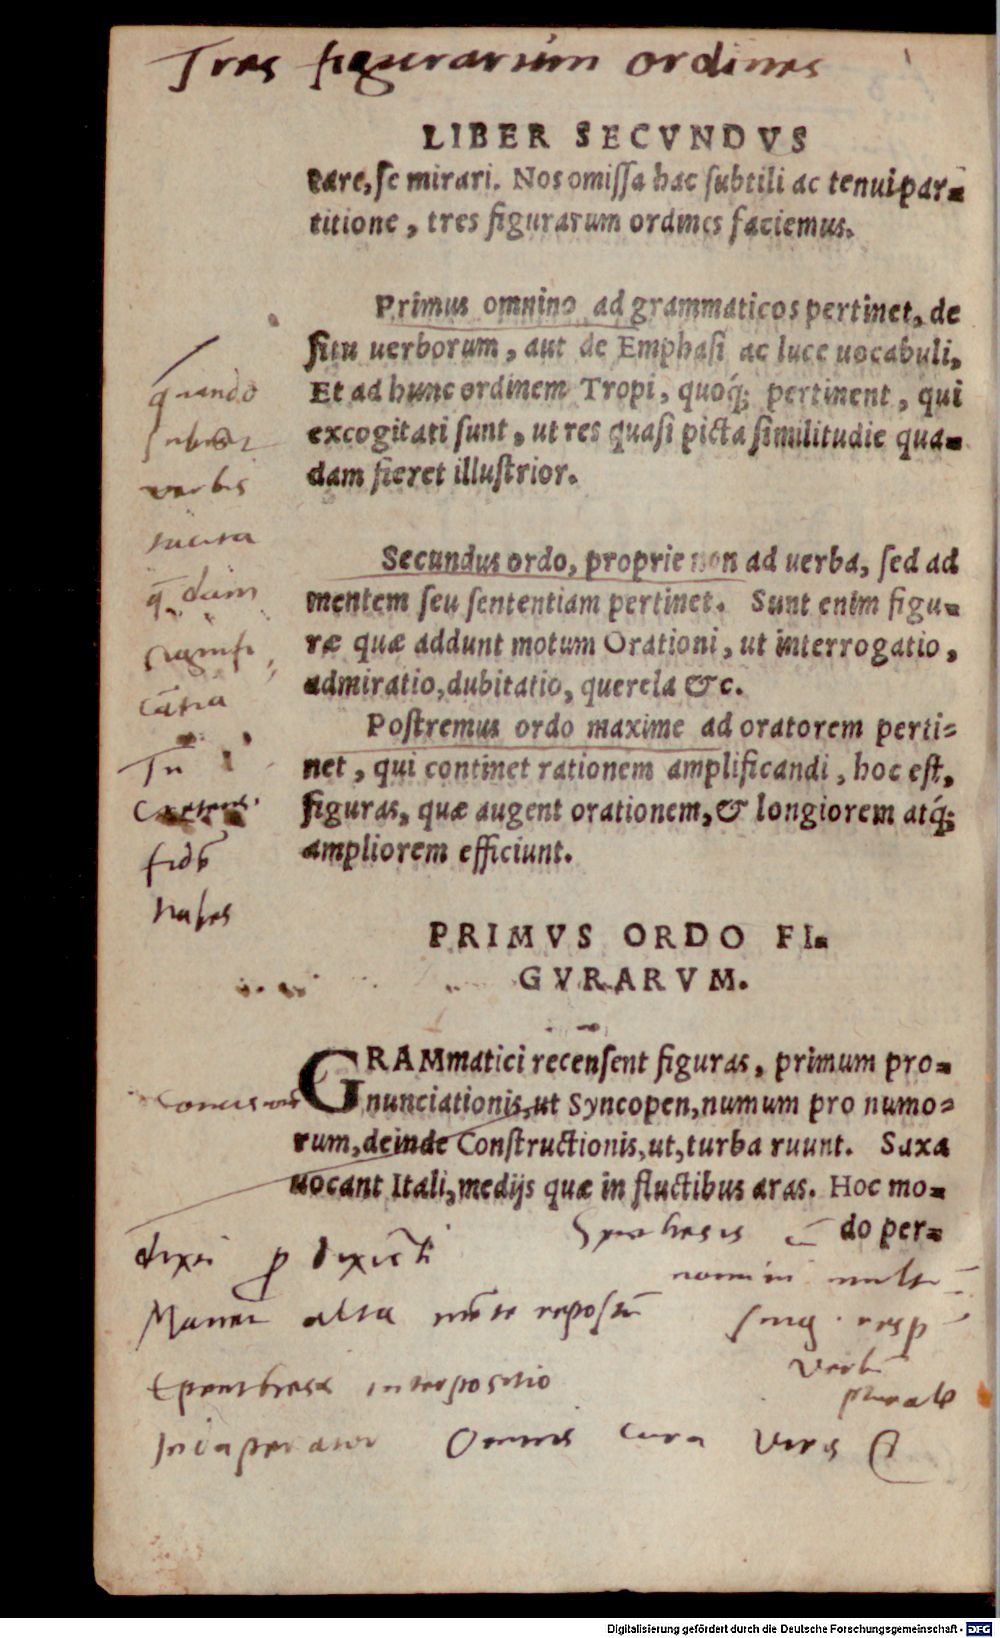 Tres figurarum ordines
LIBER SECVNDVS
tare, se mirari. Nos omiſſa hac ſubtili ac tenui par=
titione, tres figurarum ordines faciemus.
Primus omnino ad grammaticos pertinet, de
ſitu uerborum, aut de Emphaſi ac luce uocabuli,
Et ad hunc ordinem Tropi, quoq́; pertinent, qui
excogitati ſunt, ut res quaſi picta ſimilitudie qua=
dam fieret illuſtrior.
Secundus ordo, proprie non ad uerba, ſed ad
mentem ſeu ſententiam pertinet. Sunt enim figu=
ræ quæ addunt motum Orationi, ut interrogatio,
admiratio, dubitatio, querela &c.
Poſtremus ordo maxime ad oratorem perti=
net, qui continet rationem amplificandi, hoc eſt,
figuras, quæ augent orationem, & longiorem atq́;
ampliorem efficiunt.
quando
verbis
tacita
q̄dam
PRIMVS ORDO FI=
GVRARVM.
GRAMmatici recenſent figuras, primum pro=
nunciationis, ut Syncopen, numum pro numo=
rum, deinde Conſtructionis, ut, turba ruunt. Saxa
uocant Itali, medijs quæ in fluctibus aras. Hoc mo=
do per=
dixti p dixisti
Manet alta mēte repostū
Epenthesis interpositio
Induperator Omnis cura viris
nomini
sing. resp
verbū
plurale
Digitalisierung gefördert durch die Deutsche Forschungsgemeinschaft - DFG